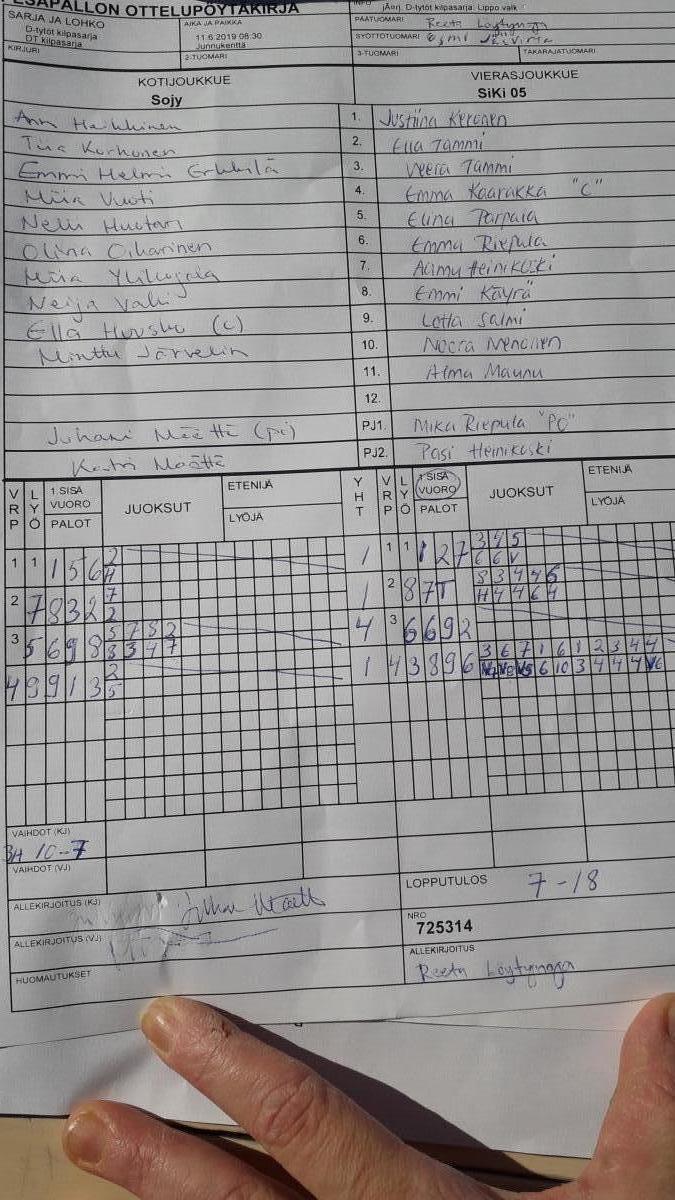 PESÄPALLON OTTELUPÖYTÄKIRJA
SARJA JA LOHKO
D-tytöt kilpasarja
DT kilpasarja
AIKA JA PAIKKA
11.6.2019 08:30
Junnukenttä
jÄnrj. D-tytöt kilpasarja. Lippo.valk
PÄÄTUOMARI Reeta Löytynoja
SYÖTTÖTUOMARI
KIRJURI
2-TUOMARI
3-TUOMARI
TAKARAJATUOMARI
KOTIJOUKKUE
Sojy
VIERASJOUKKUE
SiKi 05
Heikkinen 1. Justiina Keronen
Tiia Korhonen 2. Ella Tammi
Emmi Helmi Erkkilä 3. Veera Tammi
Miia Vuoti 4. Emma Kaarakka "C"
Nelli Huotari 5. Elina Tarpala
Oliina Oikarinen 6. Emma Riepula
7. Aamu Heinikoski
Neija 8. Emmi Käyrä
Ella Huusko (c) 9. Lotta Salmi
Minttu Järvelin 10. Noora Menollen
11. Alma Maunu
12.
Juhani Määttä (pj) PJ1. Mika Riepula "PO"
Katri Määttä PJ2. Pasi Heinikoski
VRP LYÖ 1.SISÄ VUORO PALOT JUOKSUT ETENIJÄ LYÖJÄ YHT VRP LYÖ 1.SISÄ VUORO PALOT JUOKSUT ETENIJÄ LYÖJÄ
1 1 1 5 6 2 1 1 1 1 2 7 3 4 5
6 6 V
2 7 8 3 2 7 2 1 2 8 7 T 8 3 4 4 6
H 4 4 6 4
3 5 6 9 8 5 7 8 2 4 3 6 6 9 2
8 3 4 7
4 9 9 1 3 2 5 1 4 3 8 9 6 3 6 7 1 6 1 2 3 4 4
6 10 3 4 4 4 V6
VAIHDOT (KJ)
3H 10-7
VAIHDOT (VJ)
ALLEKIRJOITUS (KJ)
ALLEKIRJOITUS (VJ)
HUOMAUTUKSET
LOPPUTULOS 7-18
NRO
725314
ALLEKIRJOITUS
Reeta Löytynoja